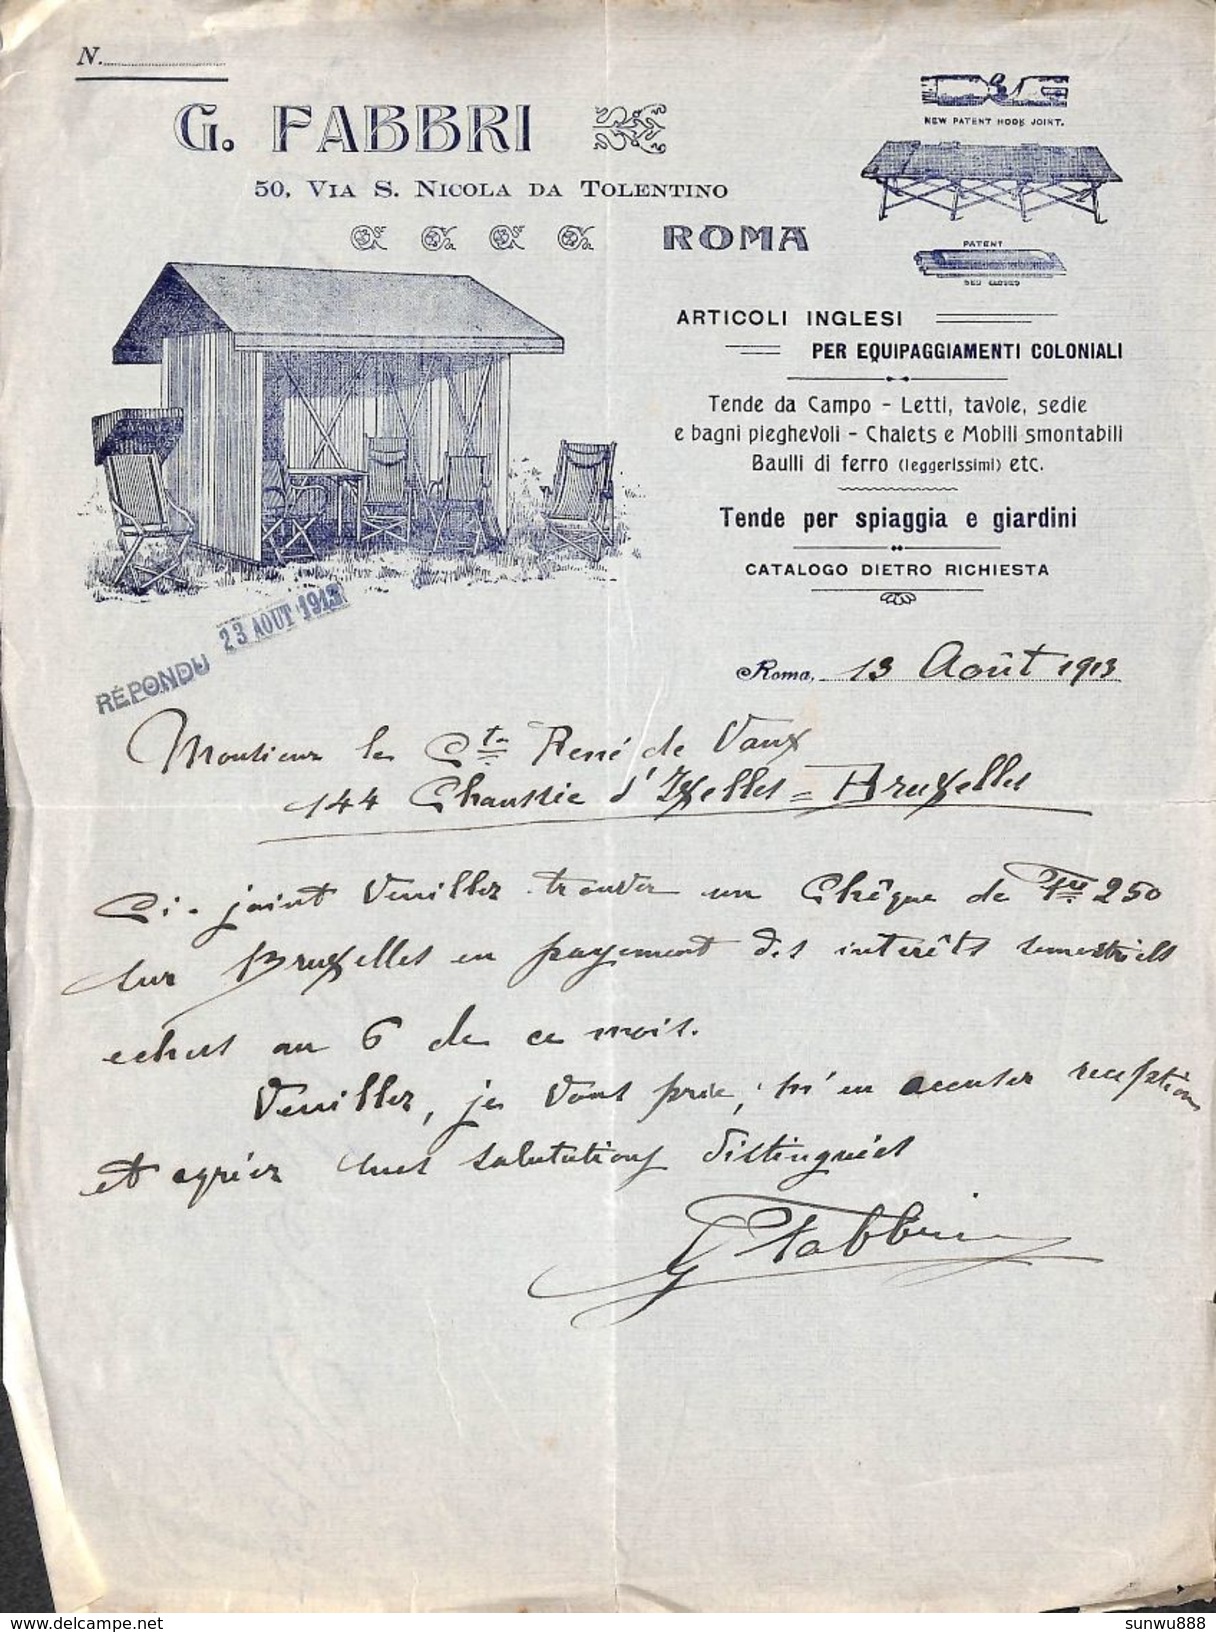 N.
G. FABBRI
50, VIA S. NICOLA DA TOLENTINO
ROMA
NEW PATENT HOOK JOINT.
PATENT
BED CLOSED
ARTICOLI INGLESI
PER EQUIPAGGIAMENTI COLONIALI
Tende da Campo - Letti, tavole, sedie
e bagni pieghevoli - Chalets e Mobili smontabili
Bauli di ferro (leggerissimi) etc.
Tende per spiaggia e giardini
CATALOGO DIETRO RICHIESTA
RÉPONDU 23 AOUT 1913
Roma, 13 Août 1913
Monsieur le Cte René de Vaux
144 Chaussée d'Ixelles = Bruxelles
Ci-joint veuillez trouver un Chêque de Frs 250
sur Bruxelles en payement des interêts semestriels
echus au 6 de ce mois.
Veuillez, je vous prie, m'en accuser reception
et agréer mes salutations distinguées
G Fabbri
sunwu888